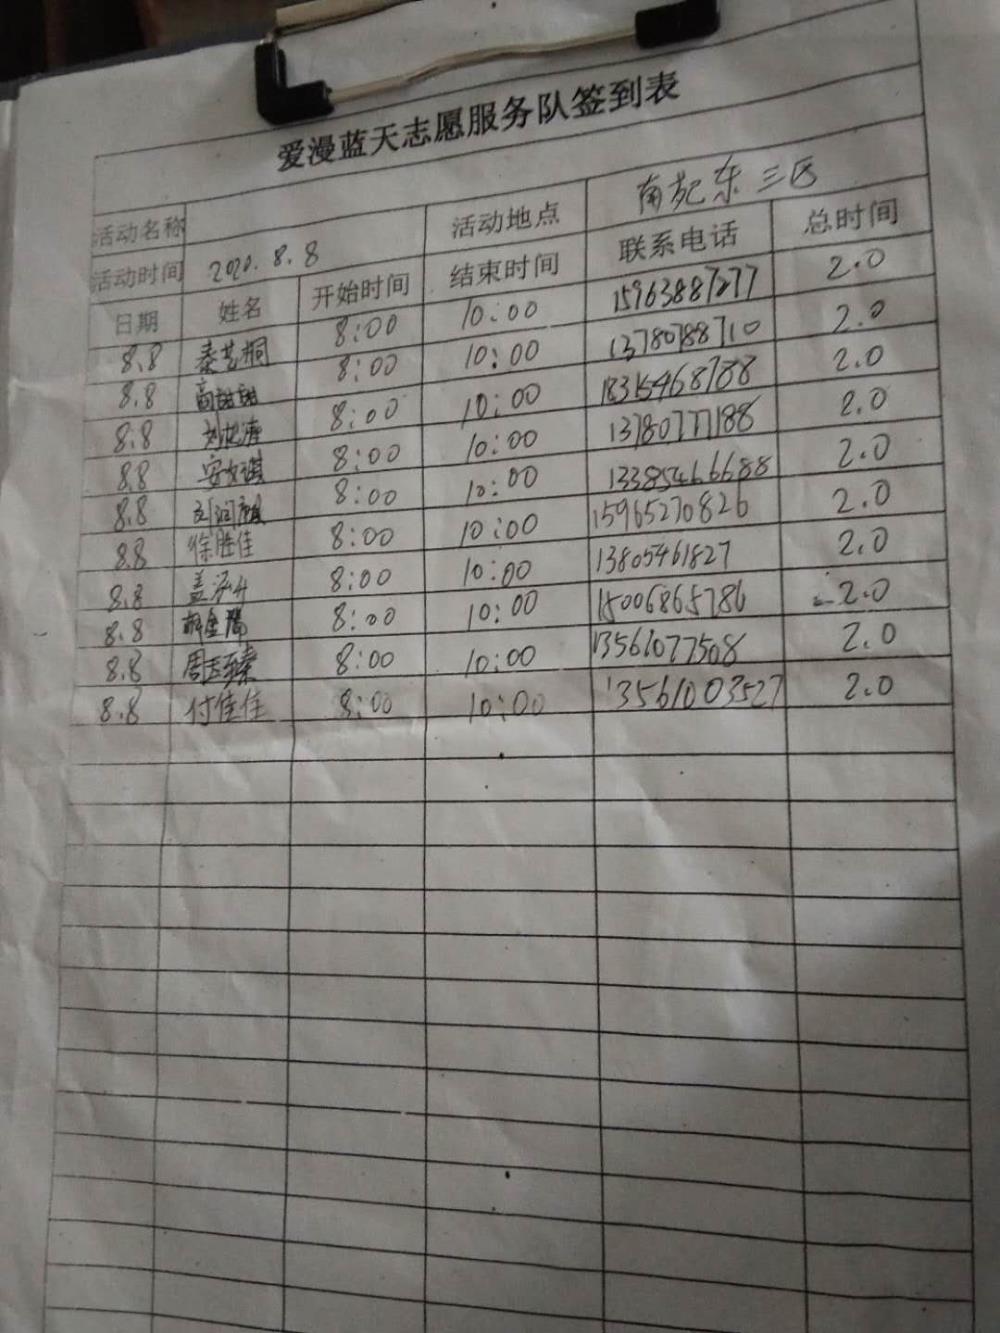 爱漫蓝天志愿服务队签到表
活动名称 活动地点 南苑东三区
活动时间 2020.8.8 结束时间 联系电话 总时间
日期 姓名 开始时间
8.8 秦艺桐 8:00 10:00 15963887277 2.0
8.8 8:00 10:00 13780788710 2.0
8.8 8:00 10:00 18315468788 2.0
8.8 安女琪 8:00 10:00 13780777188 2.0
8.8 刘润麒 8:00 10:00 13385466688 2.0
8.8 徐胜佳 8:00 10:00 15965270826 2.0
8.8 盖泓升 8:00 10:00 13805461827 2.0
8.8 8:00 10:00 15006865786 2.0
8.8 8:00 10:00 13561077508 2.0
8.8 付佳佳 8:00 10:00 13561003527 2.0